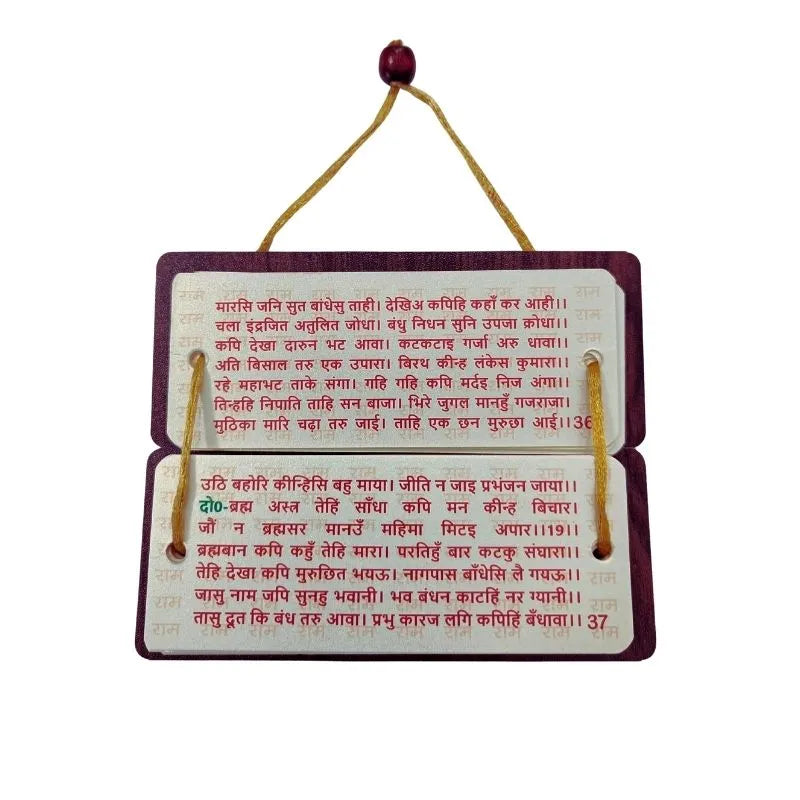 मारसि जनि सुत बांधेसु ताही। देखिअ कपिहि कहाँ कर आही।।
चला इंद्रजित अतुलित जोधा। बंधु निधन सुनि उपजा क्रोधा।।
कपि देखा दारुन भट आवा। कटकटाइ गर्जा अरु धावा।।
अति बिसाल तरु एक उपारा। बिरथ कीन्ह लंकेस कुमारा।।
रहे महाभट ताके संगा। गहि गहि कपि मर्दइ निज अंगा।।
तिन्हहि निपाति ताहि सन बाजा। भिरे जुगल मानहुँ गजराजा।
मुठिका मारि चढ़ा तरु जाई। ताहि एक छन मुरुछा आई।।36
उठि बहोरि कीन्हिसि बहु माया। जीति न जाइ प्रभंजन जाया।।
दो0-ब्रह्म अस्त्र तेहिं साँधा कपि मन कीन्ह बिचार।
जौं न ब्रह्मसर मानउँ महिमा मिटइ अपार।।19।।
ब्रह्मबान कपि कहुँ तेहि मारा। परतिहुँ बार कटकु संघारा।।
तेहि देखा कपि मुरुछित भयऊ। नागपास बाँधेसि लै गयऊ।।
जासु नाम जपि सुनहु भवानी। भव बंधन काटहिं नर ग्यानी।।
तासु दूत कि बंध तरु आवा। प्रभु कारज लगि कपिहिं बँधावा।। 37